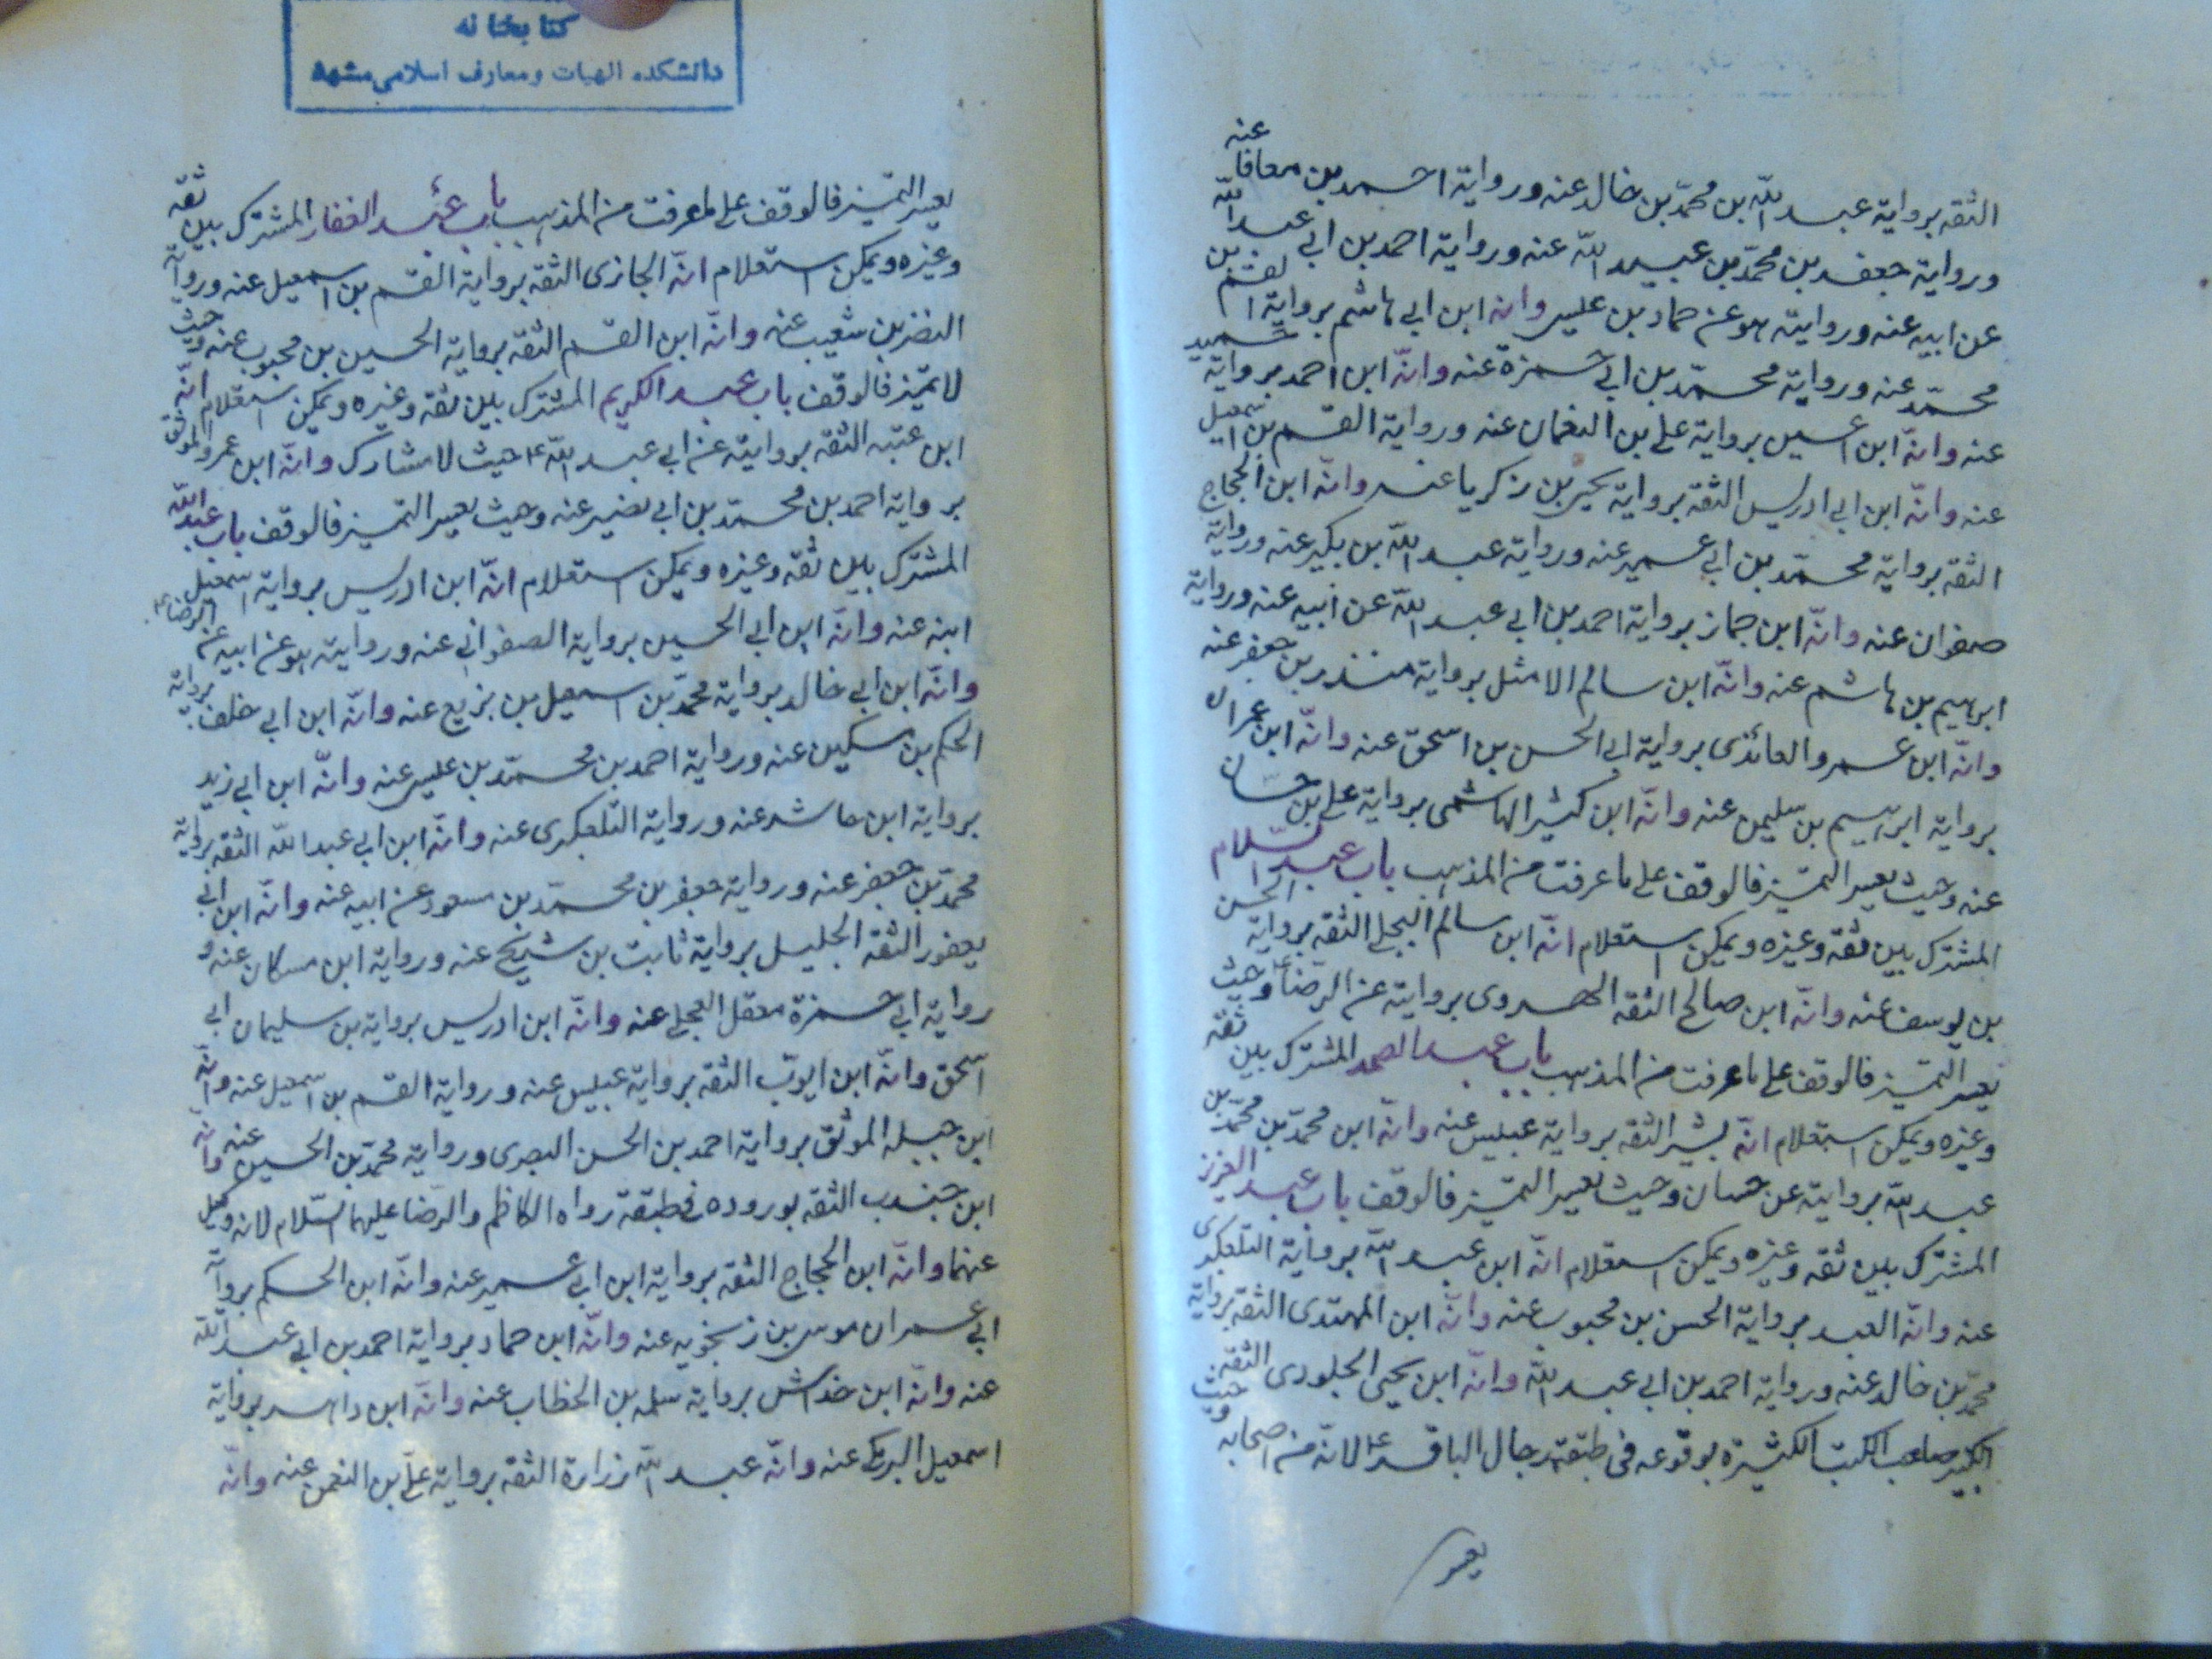 الثقه برواية عبد الله بن محمد بن خالد عنه ورواية احمد بن معافا عنه
ورواية جعفر بن محمد بن عبيد الله عنه ورواية احمد بن ابي عبد الله
عن ابيه عنه وروايته هو عن حماد بن عليس وانه ابن ابي هاشم برواية القسم بن
محمد عنه ورواية محمد بن ابي حمزة عنه وانّه ابن احمد برواية حميد
عنه وانّه ابن اعين برواية علي بن النعمان عنه ورواية القسم بن اسمعيل
عنه وانّه ابن ابي ادريس الثقة برواية يحيى بن زكريا عنه وانّه ابن الحجاج
الثقه برواية محمد بن ابي عمير عنه ورواية عبد الله بن بكير عنه ورواية
صفوان عنه وانّه ابن حماز برواية احمد بن ابي عبد الله عن ابيه عنه ورواية
ابرهيم بن هاشم عنه وانّه ابن سالم الامثل برواية منذر بن جعفر عنه
وانّه ابن عمرو العائذى برواية ابي الحسن بن اسحق عنه وانّه ابن عمران
برواية ابرهيم بن سليمن عنه وانّه ابن كثير الهاشمى برواية علي بن حسان
عنه وحيث يعسر التميز فالوقف على ما عرفت من المذهب باب عبد السّلام
المشترك بين ثقة وغيره ويمكن استعلام انّه ابن سالم البجلي الثقه برواية الحسن
بن يوسف عنه وانّه ابن صالح الثقه الهروى بروايته عن الرضا ع وحيث
يعسر التميّز فالوقف على ما عرفت من المذهب باب عبد الصمد المشترك بين ثقه
وغيره ويمكن استعلام انّه بشير الثقه برواية عبيس عنه وانّه ابن محمد بن محمد بن
عبد الله بروايته عن حسان وحيث يعسر التميّز فالوقف باب عبد العزيز
المشترك بين ثقه وغيره ويمكن استعلام انّه ابن عبد الله برواية التلعكبرى
عنه وانّه العبد برواية الحسن بن محبوب عنه وانّه ابن المهتدى الثقه برواية
محمد بن خالد عنه ورواية احمد بن ابي عبد الله وانّه ابن يحيى الجلودى الثقه
الكبير صاحب الكتب الكثيرة بوقوعه فى طبقة رجال الباقر ع لانّه من اصحابه وحيث
يعسر
كتابخانه
دانشكده الهيات ومعارف اسلامى مشهد
يعسر التميز فالوقف على ما عرفت من المذهب باب عبد الغفار المشترك بين ثقه
وغيره ويمكن استعلام انّه الجازى الثقه برواية القسم بن اسمعيل عنه ورواية
النضر بن شعيب عنه وانّه ابن القسم الثقه برواية الحسين بن محبوب عنه وحيث
لا تميّز فالوقف باب عبد الكريم المشترك بين ثقه وغيره ويمكن استعلام انّه
ابن عتبه الثقه بروايته عن ابي عبد الله ع حيث لا مشارك وانّه ابن عمرو الموثق
برواية احمد بن محمد بن ابي نصر عنه وحيث يعسر التميز فالوقف باب عبد الله
المشترك بين ثقه وغيره ويمكن استعلام انّه ابن ادريس برواية اسمعيل
ابنه عنه وانّه ابن ابي الحسين برواية الصفوانى عنه وروايته هو عن ابيه عن الرضا ع
وانّه ابن ابي خالد برواية محمد بن اسمعيل بن بزيع عنه وانّه ابن ابي خلف برواية
الحكم بن مسكين عنه ورواية احمد بن محمد بن عليس عنه وانّه ابن ابي زيد
برواية ابن حاشر عنه ورواية التلعكبرى عنه وانّه ابن ابي عبد الله الثقه برواية
محمد بن جعفر عنه ورواية جعفر بن محمد بن مسعود عن ابيه عنه وانّه ابن ابي
يعفور الثقه الجليل برواية ثابت بن شريح عنه ورواية ابن مسكان عنه و
رواية ابي حمزة معقل العجلي عنه وانّه ابن ادريس برواية بن سليمان ابي
اسحق وانّه ابن ايوب الثقه برواية عبيس عنه ورواية القسم بن اسمعيل عنه وانّه
ابن جبله الموثق برواية احمد بن الحسن البصرى ورواية محمد بن الحسين عنه وانّه
ابن جندب الثقه بوروده في طبقة رواه الكاظم والرضا عليهما السّلام لانه وكيل
عنهما وانّه ابن الحجاج الثقه برواية ابن ابي عمير عنه وانّه ابن الحكم برواية
ابي عمران موسى بن زنجويه عنه وانّه ابن حماد برواية احمد بن ابي عبد الله
عنه وانّه ابن خداش برواية سلمه بن الخطاب عنه وانّه ابن داهر برواية
اسمعيل البرمكى عنه وانّه عبد الله زرارة الثقه برواية علي بن النعمن عنه وانّه